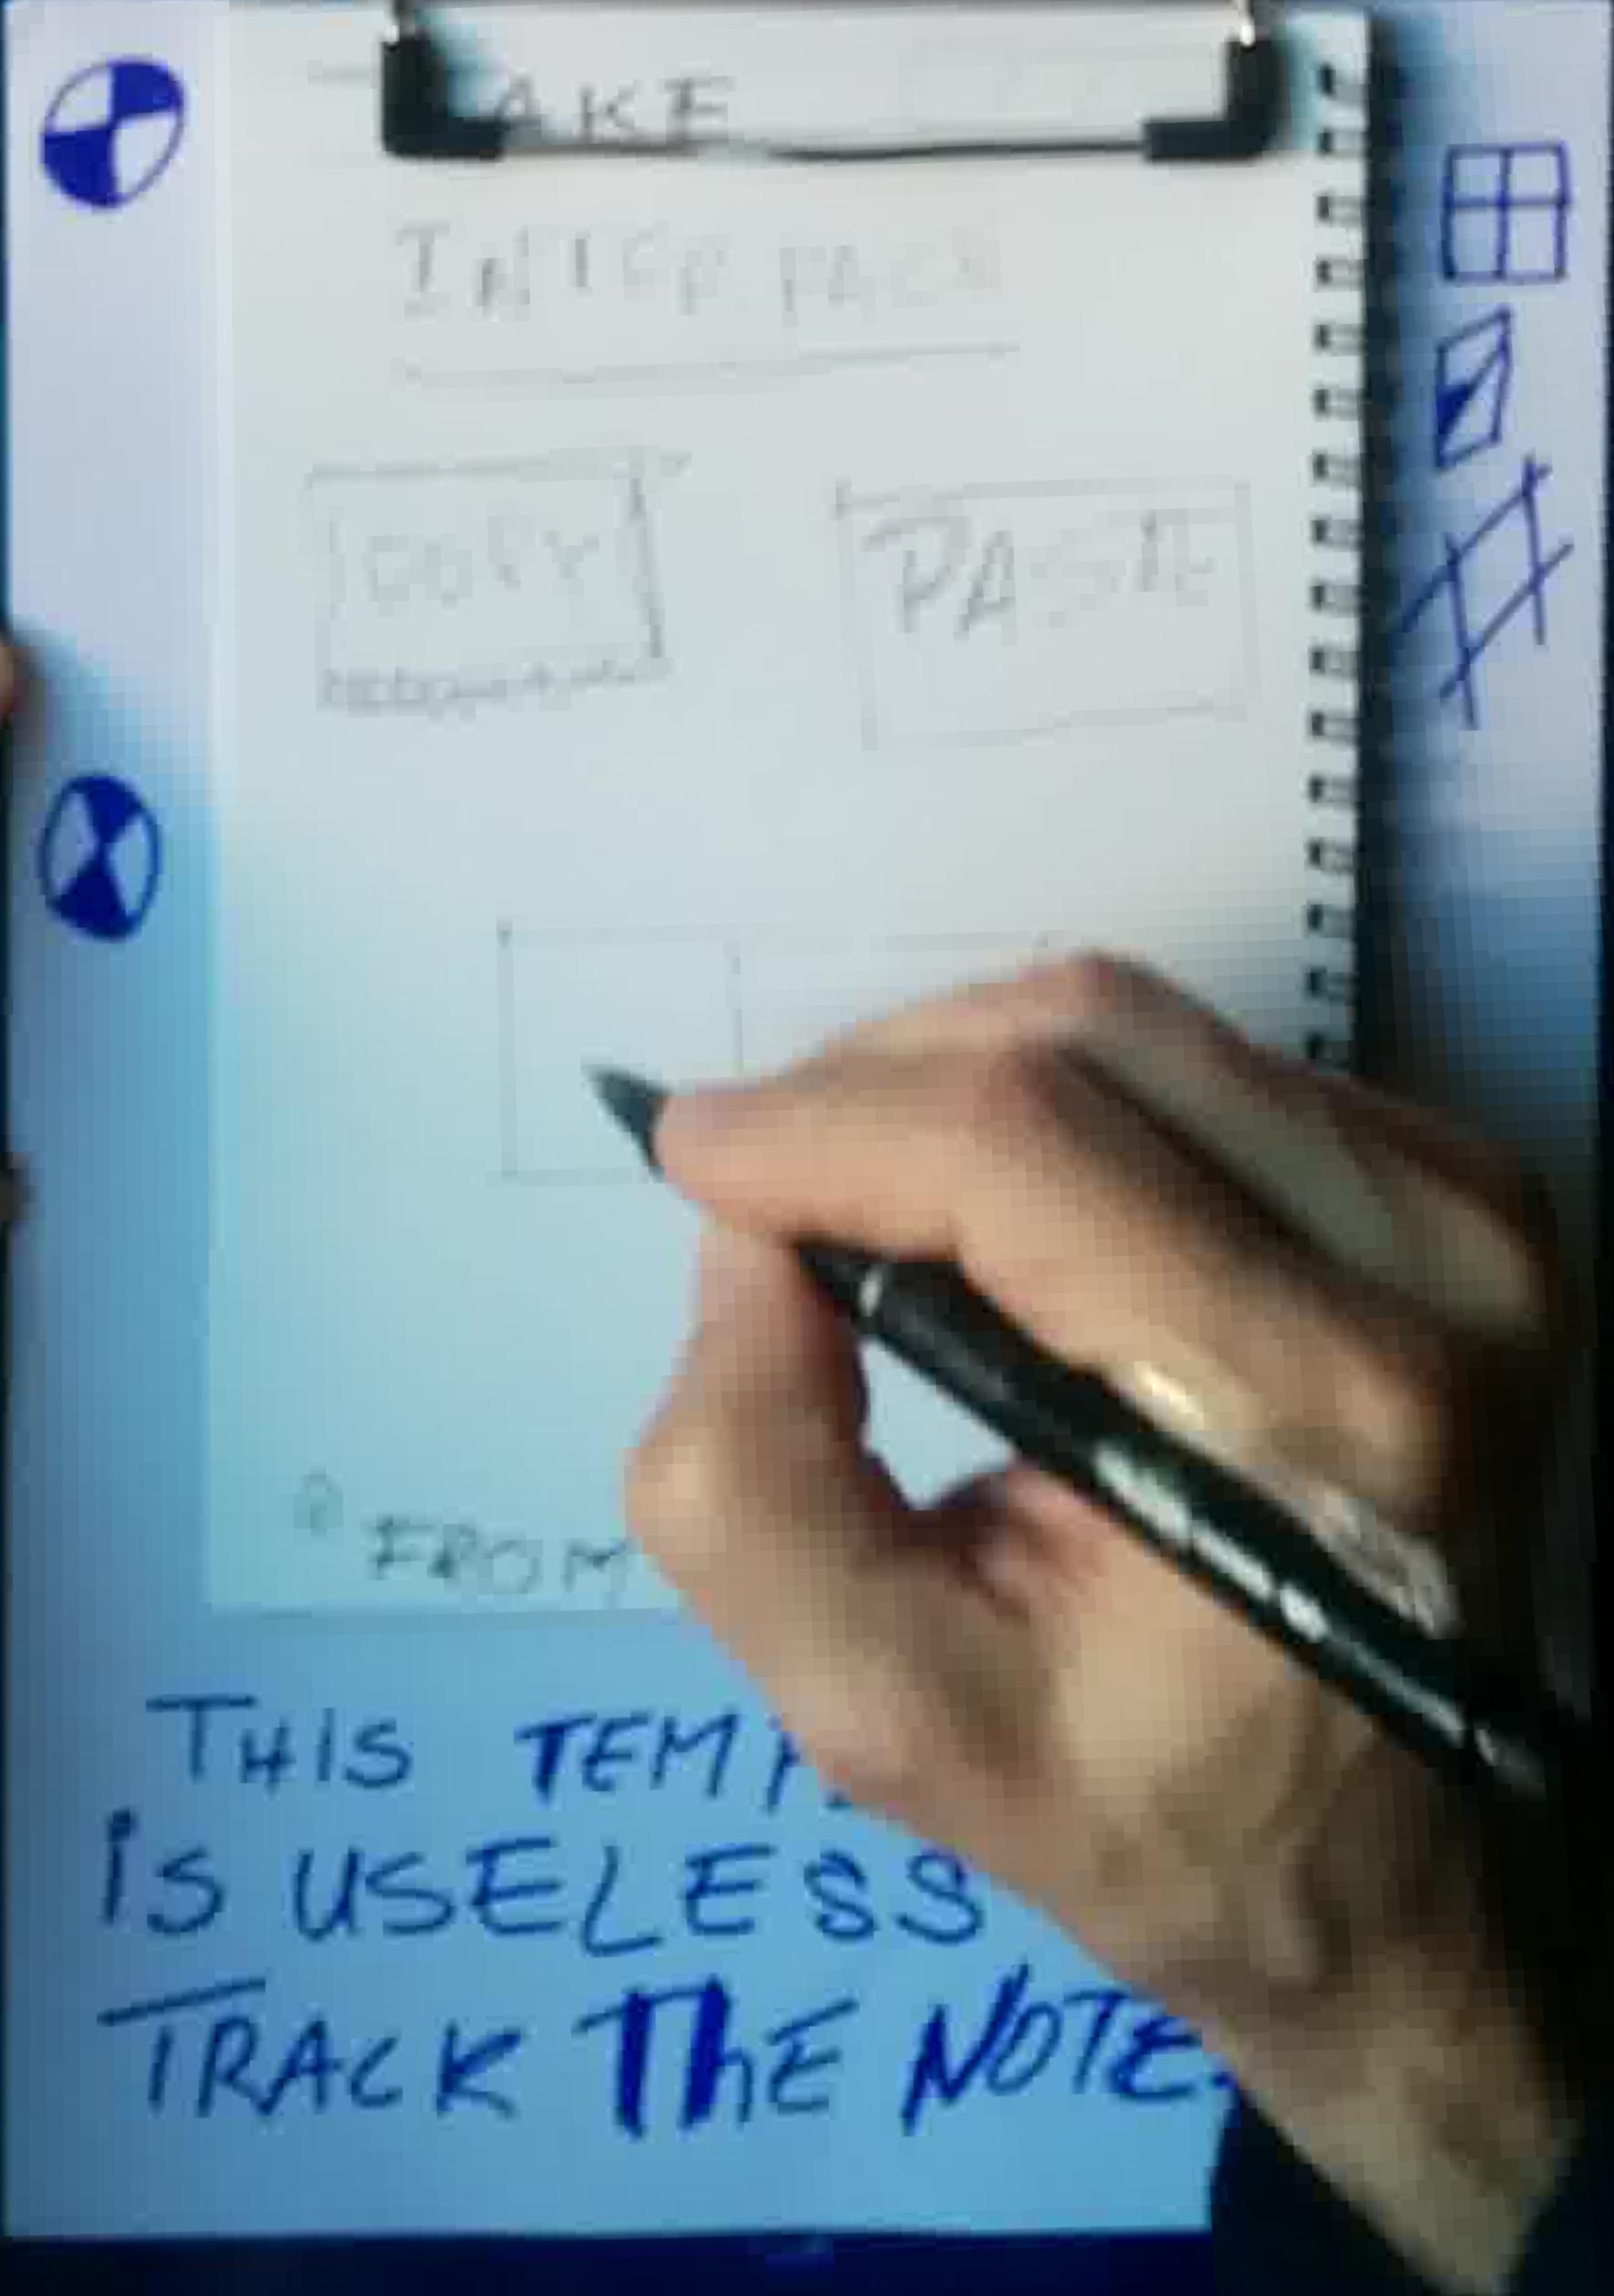 AKE
INTERFACE
COPY PASTE
FROM
THIS TEMP
iS USELESS
TRACK ThE NOTE.